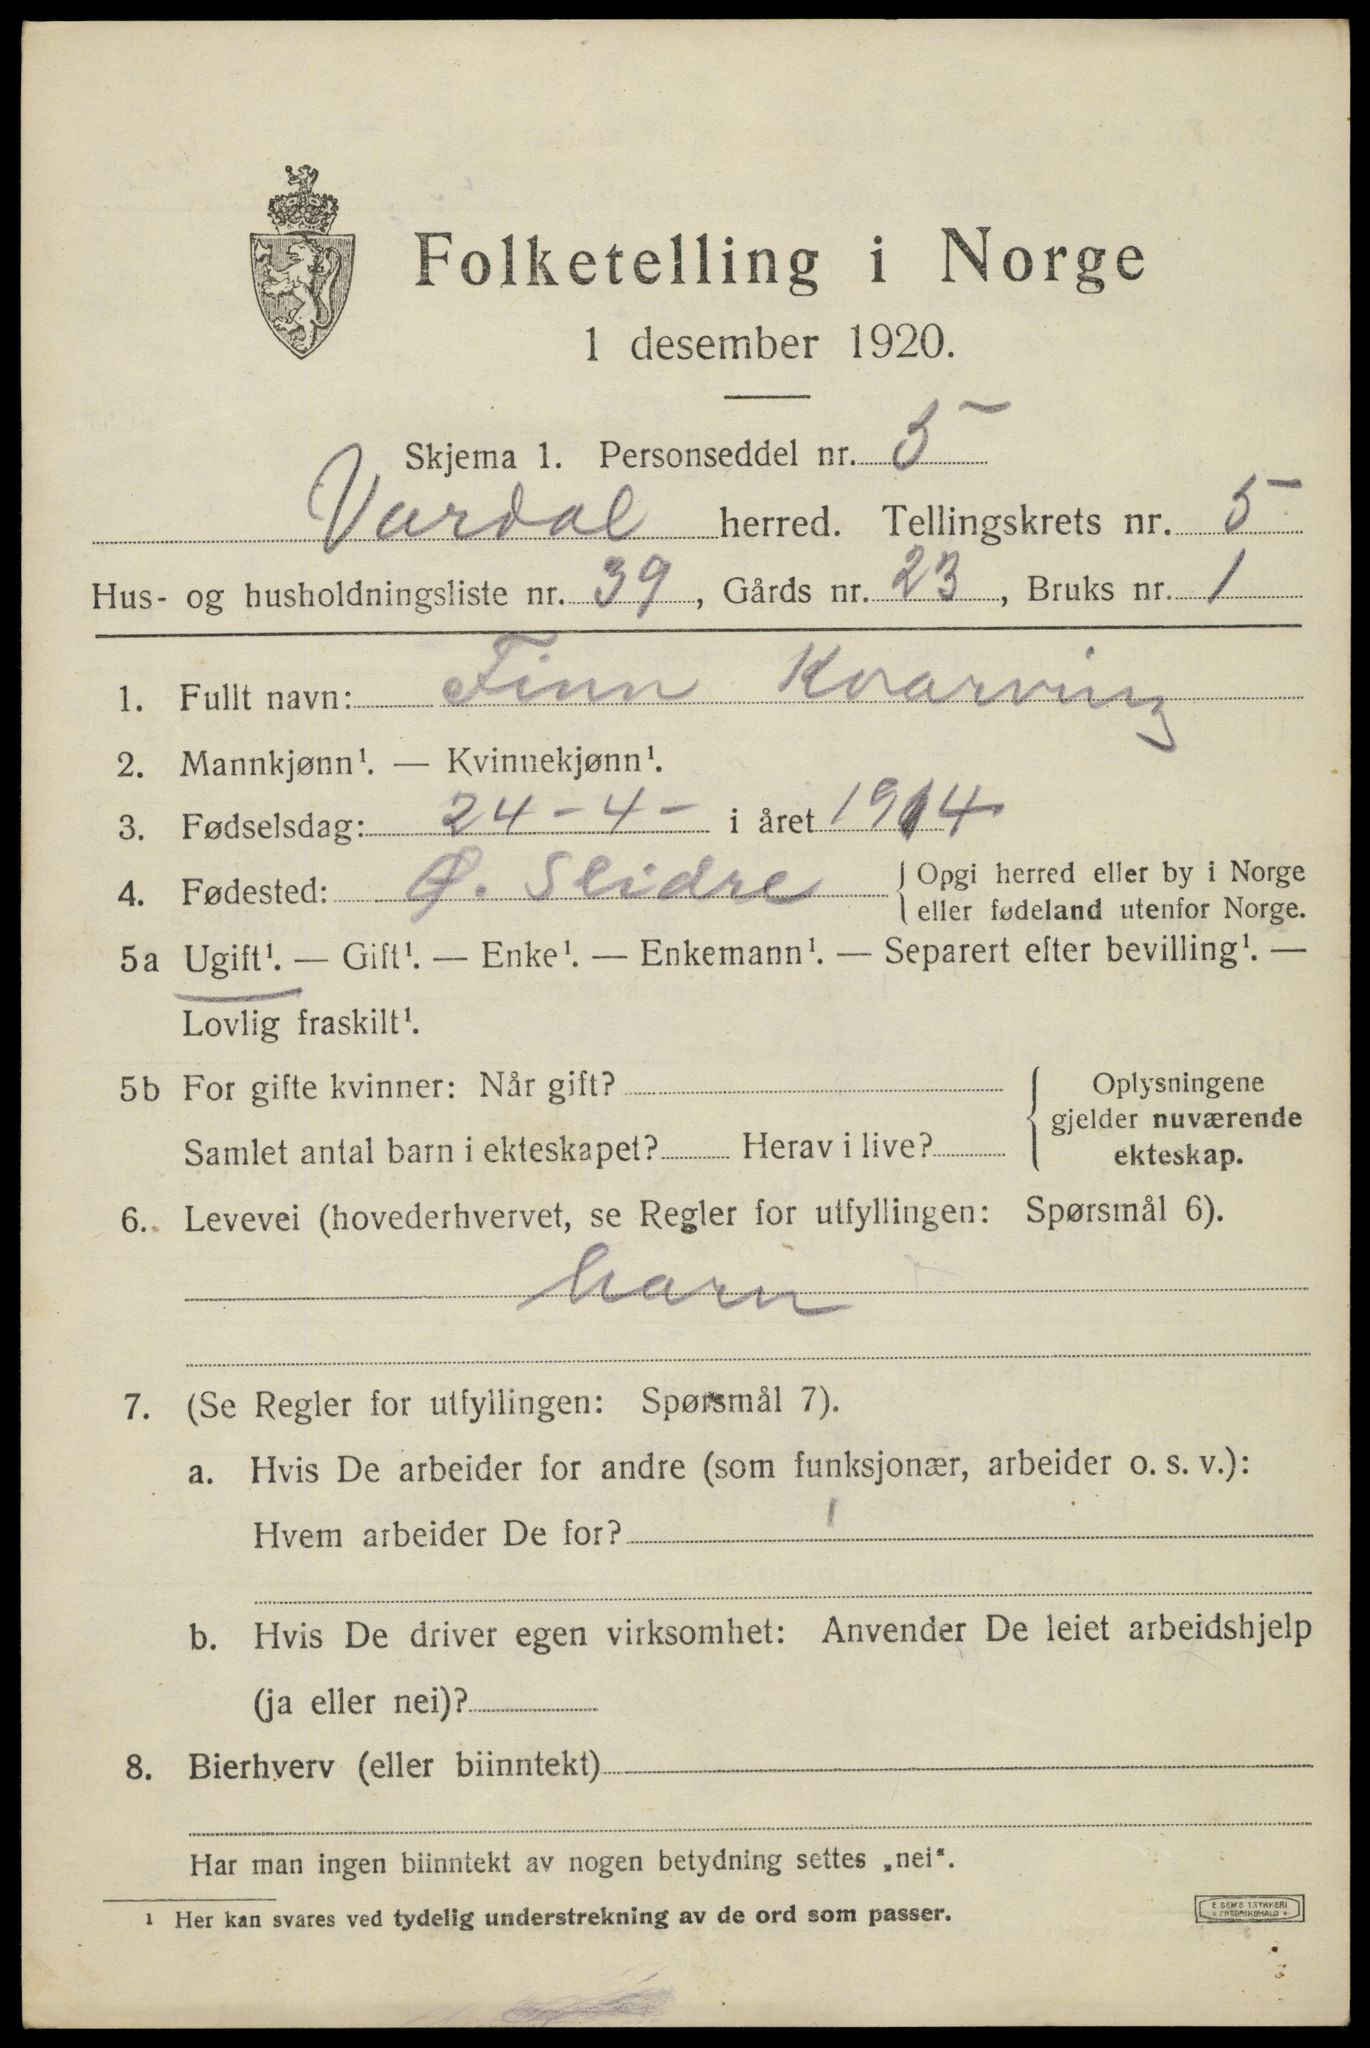 Folketelling i Norge
1 desember 1920.
Skjema 1. Personseddel nr. 5
Vardal herred. Tellingskrets nr. 5
Hus- og husholdningsliste nr. 39, Gårds nr. 23, Bruks nr. 1
1. Fullt navn: Finn Kvarving
2. Mannkjønn¹. — Kvinnekjønn¹.
3. Fødselsdag: 24-4- i året 1914
4. Fødested: Ø. Slidre
{ Opgi herred eller by i Norge
eller fødeland utenfor Norge.
5a Ugift¹. — Gift¹. — Enke¹. — Enkemann¹. — Separert efter bevilling¹. —
Lovlig fraskilt¹.
5b For gifte kvinner: Når gift?
Samlet antal barn i ekteskapet? Herav i live?
{ Oplysningene
gjelder nuværende
ekteskap.
6. Levevei (hovederhvervet, se Regler for utfyllingen: Spørsmål 6).
barn
7. (Se Regler for utfyllingen: Spørsmål 7).
a. Hvis De arbeider for andre (som funksjonær, arbeider o. s. v.):
Hvem arbeider De for?
b. Hvis De driver egen virksomhet: Anvender De leiet arbeidshjelp
(ja eller nei)?
8. Bierhverv (eller biinntekt)
Har man ingen biinntekt av nogen betydning settes „nei“.
¹ Her kan svares ved tydelig understrekning av de ord som passer.
E. SEM'S TRYKKERI
FREDRIKSHALD